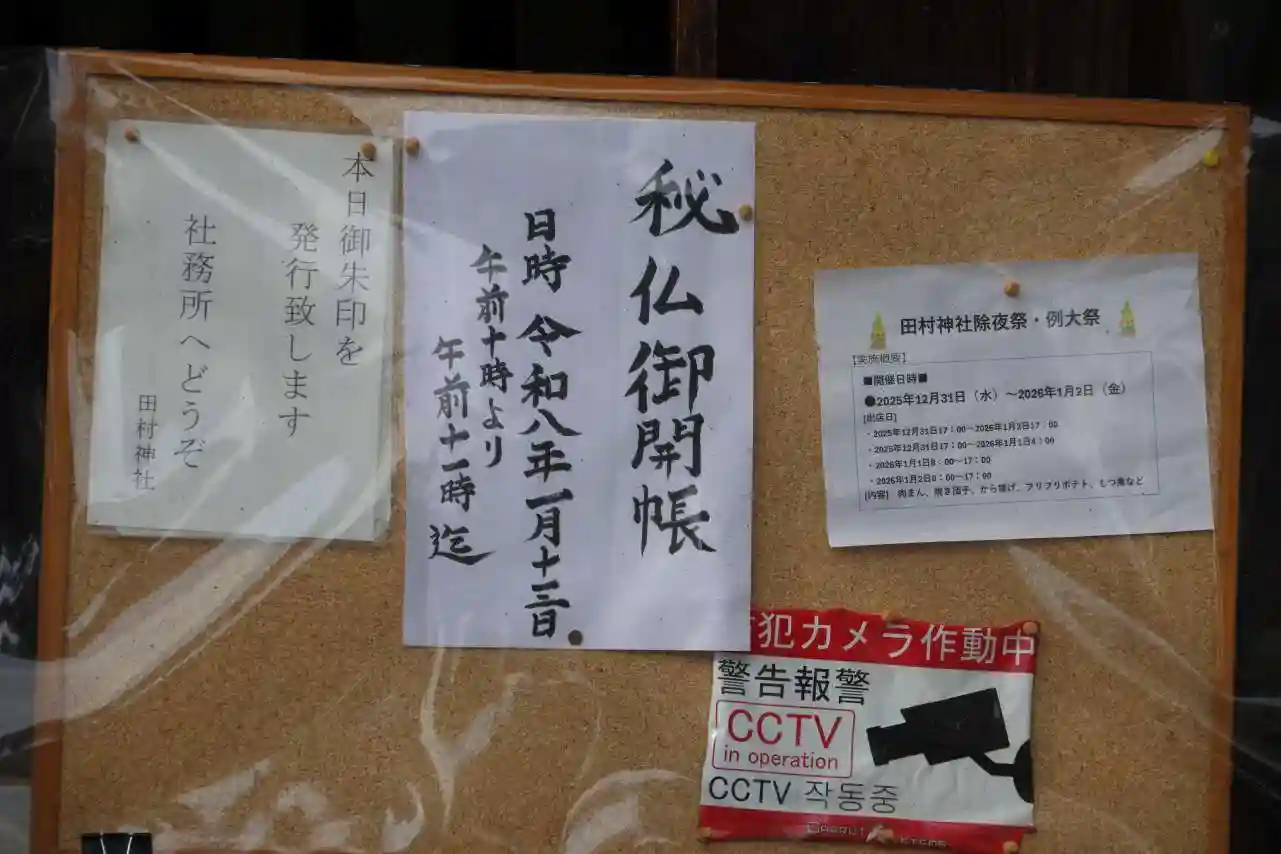 本日御朱印を
発行致します
社務所へどうぞ
田村神社
秘仏御開帳
日時 令和八年一月十三日
午前十時より
午前十一時迄
田村神社除夜祭・例大祭
【実施概要】
■開催日時■
●2025年12月31日（水）～2026年1月2日（金）
[出店日]
・2025年12月31日17：00～2026年1月2日17：00
・2025年12月31日17：00～2026年1月1日4：00
・2026年1月1日8：00～17：00
・2026年1月2日8：00～17：00
[内容] 肉まん、焼き団子、から揚げ、フリフリポテト、もつ煮など
犯カメラ作動中
警告報警
CCTV
in operation
CCTV 작동중